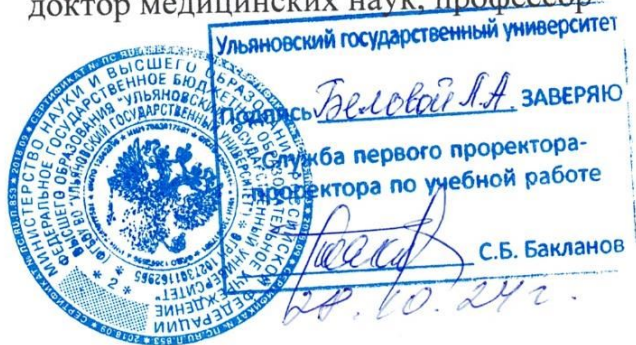 доктор медицинских наук, профессор
Ульяновский государственный университет
Подпись Беловой Л.А. ЗАВЕРЯЮ
Служба первого проректора-
проректора по учебной работе
С.Б. Бакланов
28.10.24г.
МИНИСТЕРСТВО НАУКИ И ВЫСШЕГО ОБРАЗОВАНИЯ РОССИЙСКОЙ ФЕДЕРАЦИИ
ФЕДЕРАЛЬНОЕ ГОСУДАРСТВЕННОЕ БЮДЖЕТНОЕ ОБРАЗОВАТЕЛЬНОЕ УЧРЕЖДЕНИЕ
ВЫСШЕГО ОБРАЗОВАНИЯ "УЛЬЯНОВСКИЙ ГОСУДАРСТВЕННЫЙ УНИВЕРСИТЕТ"
* 2 *